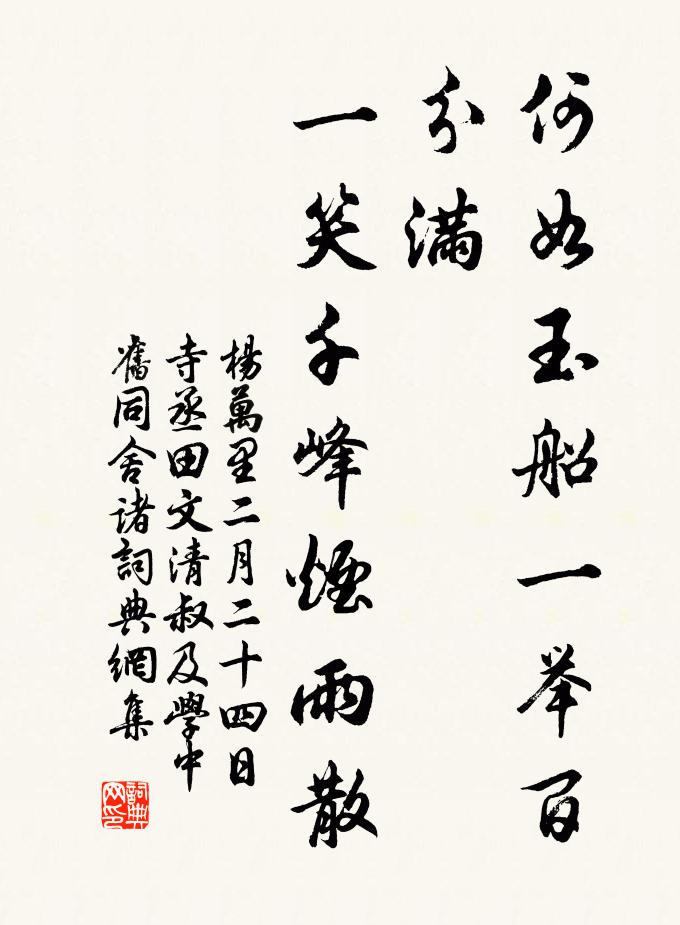 何如玉船一举百
分满
一笑千峰煙雨散
楊萬里二月二十四日
寺丞田文清叔及學中
舊同舍诸詞典網集
詞典网印